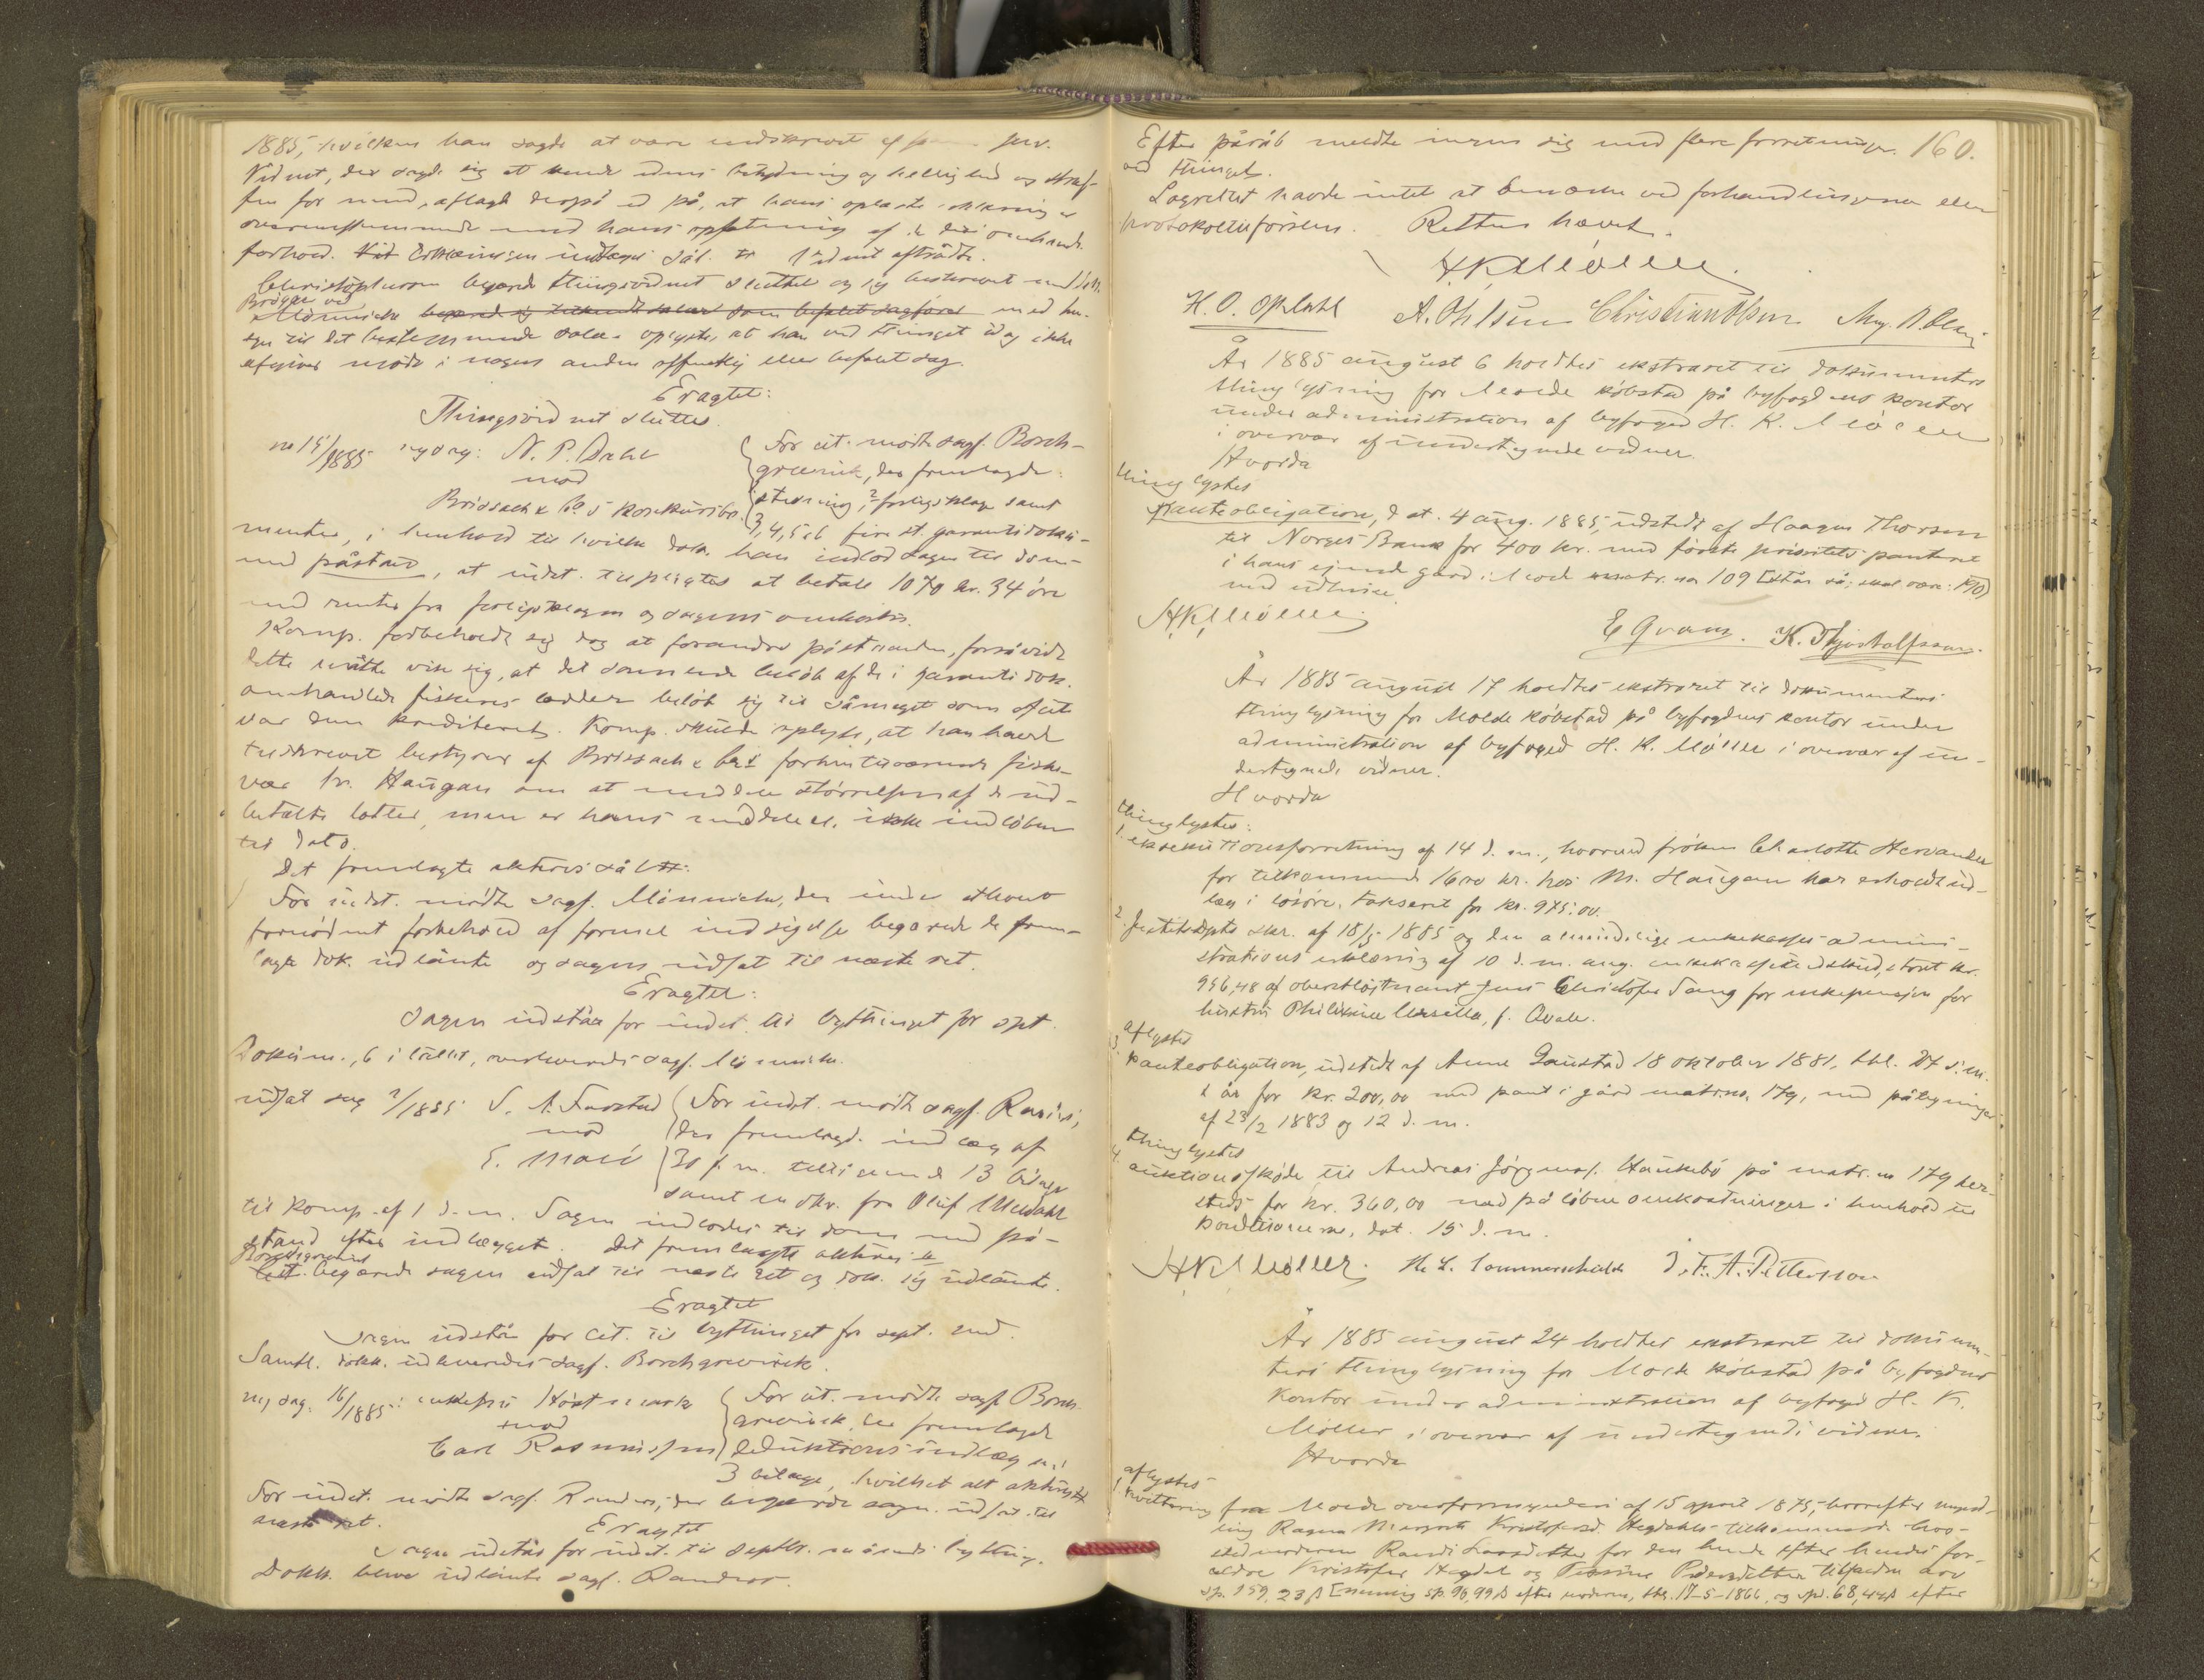 1885, hvilken han sagde at være underskrevet af
Vidnet, der sagde sig at kende edens betydning og hellighed og straf-
fen for mened, aflagde derpå ed på, at hans oplæste erklæring er
overensstemmende med hans opfatning af de deri omhandl.
forhold. Erklæringen indtages Vidnet aftrådte.
Christophersen begærede thingsvidnet sluttet og sig beskrevet
Brügge ved
Mönniche begæred sig tilkendt salær som befalet sagfører med hen-
syn til det bestemmende salær oplystes, at han ved thinget idag ikke
afgiver møde i nogen anden offentlig eller befalet sag.
Eragtet:
Thingsvidnet sluttes.
no 15/1885 ny sag: N. P. Dahl
mod
Brissach & Co's konkursbo.
For cit. mødte sagf. Borch-
grevink, der fremlagde
stævning, 2 forligsklage samt
3, 4, 5 & 6 fire st. garantidoku-
menter, i henhold til hvilke dok. han indlod sagen til dom
med påstand, at indst. tilpligtes at betale 1070 kr. 34 øre
med renter fra forligsklagen og sagens omkostn.
Komp. forbeholdt sig dog at forandre påstanden, forsåvidt
dette måtte vise sig, at det samlede beløb af de i garantidok.
omhandlede fiskeres lodder beløb sig til såmeget som af cit
var dem krediteret. Komp. skulde oplyse, at han havde
tilskrevet bestyrer af Brissach & Co's forhenværende fiske-
vær hr. Haugan om at meddele størrelsen af de ud-
betalte lotter, men er hans meddelel. ikke indløben
til dato.
Det fremlagte akteres
For indst. mødte sagf. Mönniche, der under ethvert
fornødent forbehold af formel indsigelse begærede de frem-
lagte dok. udlånte og sagen udsat til næste ret.
Eragtet:
Sagen udstår for indst. til bythinget for sept.
Dokum., 6 i tallet, overleveredes sagf. Mönniche.
udsat sag 2/1885 S. A. Farstad
mod
E. Moe
For indst. mødte sagf. Randers,
der fremlagde indlæg af
30 f. m. tilligemed 13 bilage
samt en skr. fra Oluf
til komp. af 1 d. m. Sagen indlodes til dom med på-
stand efter indlægget. Det fremlagte akteres
Borchgrevink
Cit. begærede sagen udsat til næste ret og dok. sig udlånte.
Eragtet
Sagen udstår for cit. til bythinget for sept. md.
Samtl. dokk. udleveredes sagf. Borchgrevink.
ny sag. 16/1885: enkefru Høstmark
mod
Carl Rasmussen
For cit. mødte sagf. Borch-
grevink, der fremlagde
deduktionsindlæg med
3 bilage, hvilket alt akteres
For indst. mødte sagf. Randers, der begærede sagen udsat til
næste ret.
Eragtet
Sagen udstår for indst. til septbr. måneds bything.
Dokk. blev udlånte sagf. Randers.
Efter påråb meldte ingen sig med flere forretninger 160.
ved thinget.
Lagrettet havde intet at bemærke ved forhandlingerne eller
protokollførselen. Retten hævet.
H K Møller.
H. O. Opdahl A. Ohlsen Christian Olsen
År 1885 august 6 holdtes ekstraret til dokumenters
thinglysning for Molde købstad på byfogdens kontor
under administration af byfoged H. K. Møller
i overvær af undertegnede vidner.
Hvorda
thinglystes
Panteobligation, dat. 4 aug. 1885, udstedt af Haagen Thorsen
til Norges Bank for 400 kr. med første prioritets panteret
i hans ejende gård i Molde matr. no 109 [står så; skal være: 170]
med udhuse.
H K Møller
E Qvam. K. Thjostolfssen.
År 1885 august 17 holdtes ekstraret til dokumenters
thinglysning for Molde købstad på byfogdens kontor under
administration af byfoged H. K. Møller i overvær af un-
dertegnede vidner.
Hvorda
thinglystes:
1. eksekutionsforretning af 14 d. m., hvorved frøken Charlotte Hervander
for tilkommende 1600 kr. hos M. Haugan har erholdt ud-
læg i løsøre, takseret for kr. 975,00.
2. Justitsdpts skr. af 18/5 1885 og den almindelige enkekasses admini-
strations erklæring af 10 d. m. ang. enkekasseindskud, stort kr.
956,48 af oberstløjtnant Jens Christofer Sang for enkepension for
hustru Philixine Ursilla, f. Qvale.
aflystes
3. Panteobligation, udstedt af Anne Gaustad 18 oktober 1881, thl.
& år for kr. 200,00 med pant i gård matr. no. 179, med påtegninger
af 23/2 1883 og 12 d. m.
thinglystes
4. auktionsskøde til Andreas Jørgens. Haukebö på matr. no 179 her-
steds for kr. 360,00 med påløbne omkostninger i henhold til
konditionerne, dat. 15 d. m.
H K Møller. H. L. Sommerschild J. F. A. Pettersson
År 1885 august 24 holdtes ekstraret til dokumen-
ters thinglysning for Molde købstad på byfogdens
kontor under administration af byfoged H. K.
Møller i overvær af undertegnede vidner.
Hvorda
aflystes
1. kvittering fra Molde overformynderi af 15 april 1875, hvorefter umynd-
ling Ragna Margrete Kristofersd. Hegdahls tilkommende hos
stedmoderen Randi Larsdatter for den hende efter hendes for-
ældre Kristofer Hegdal og Pedersdatter tilfaldne arv
sp. 159, 23 ß [nemlig sp. 90, 99 ß efter moderen, thl. 17-5-1866, og sp. 68,44 ß efter